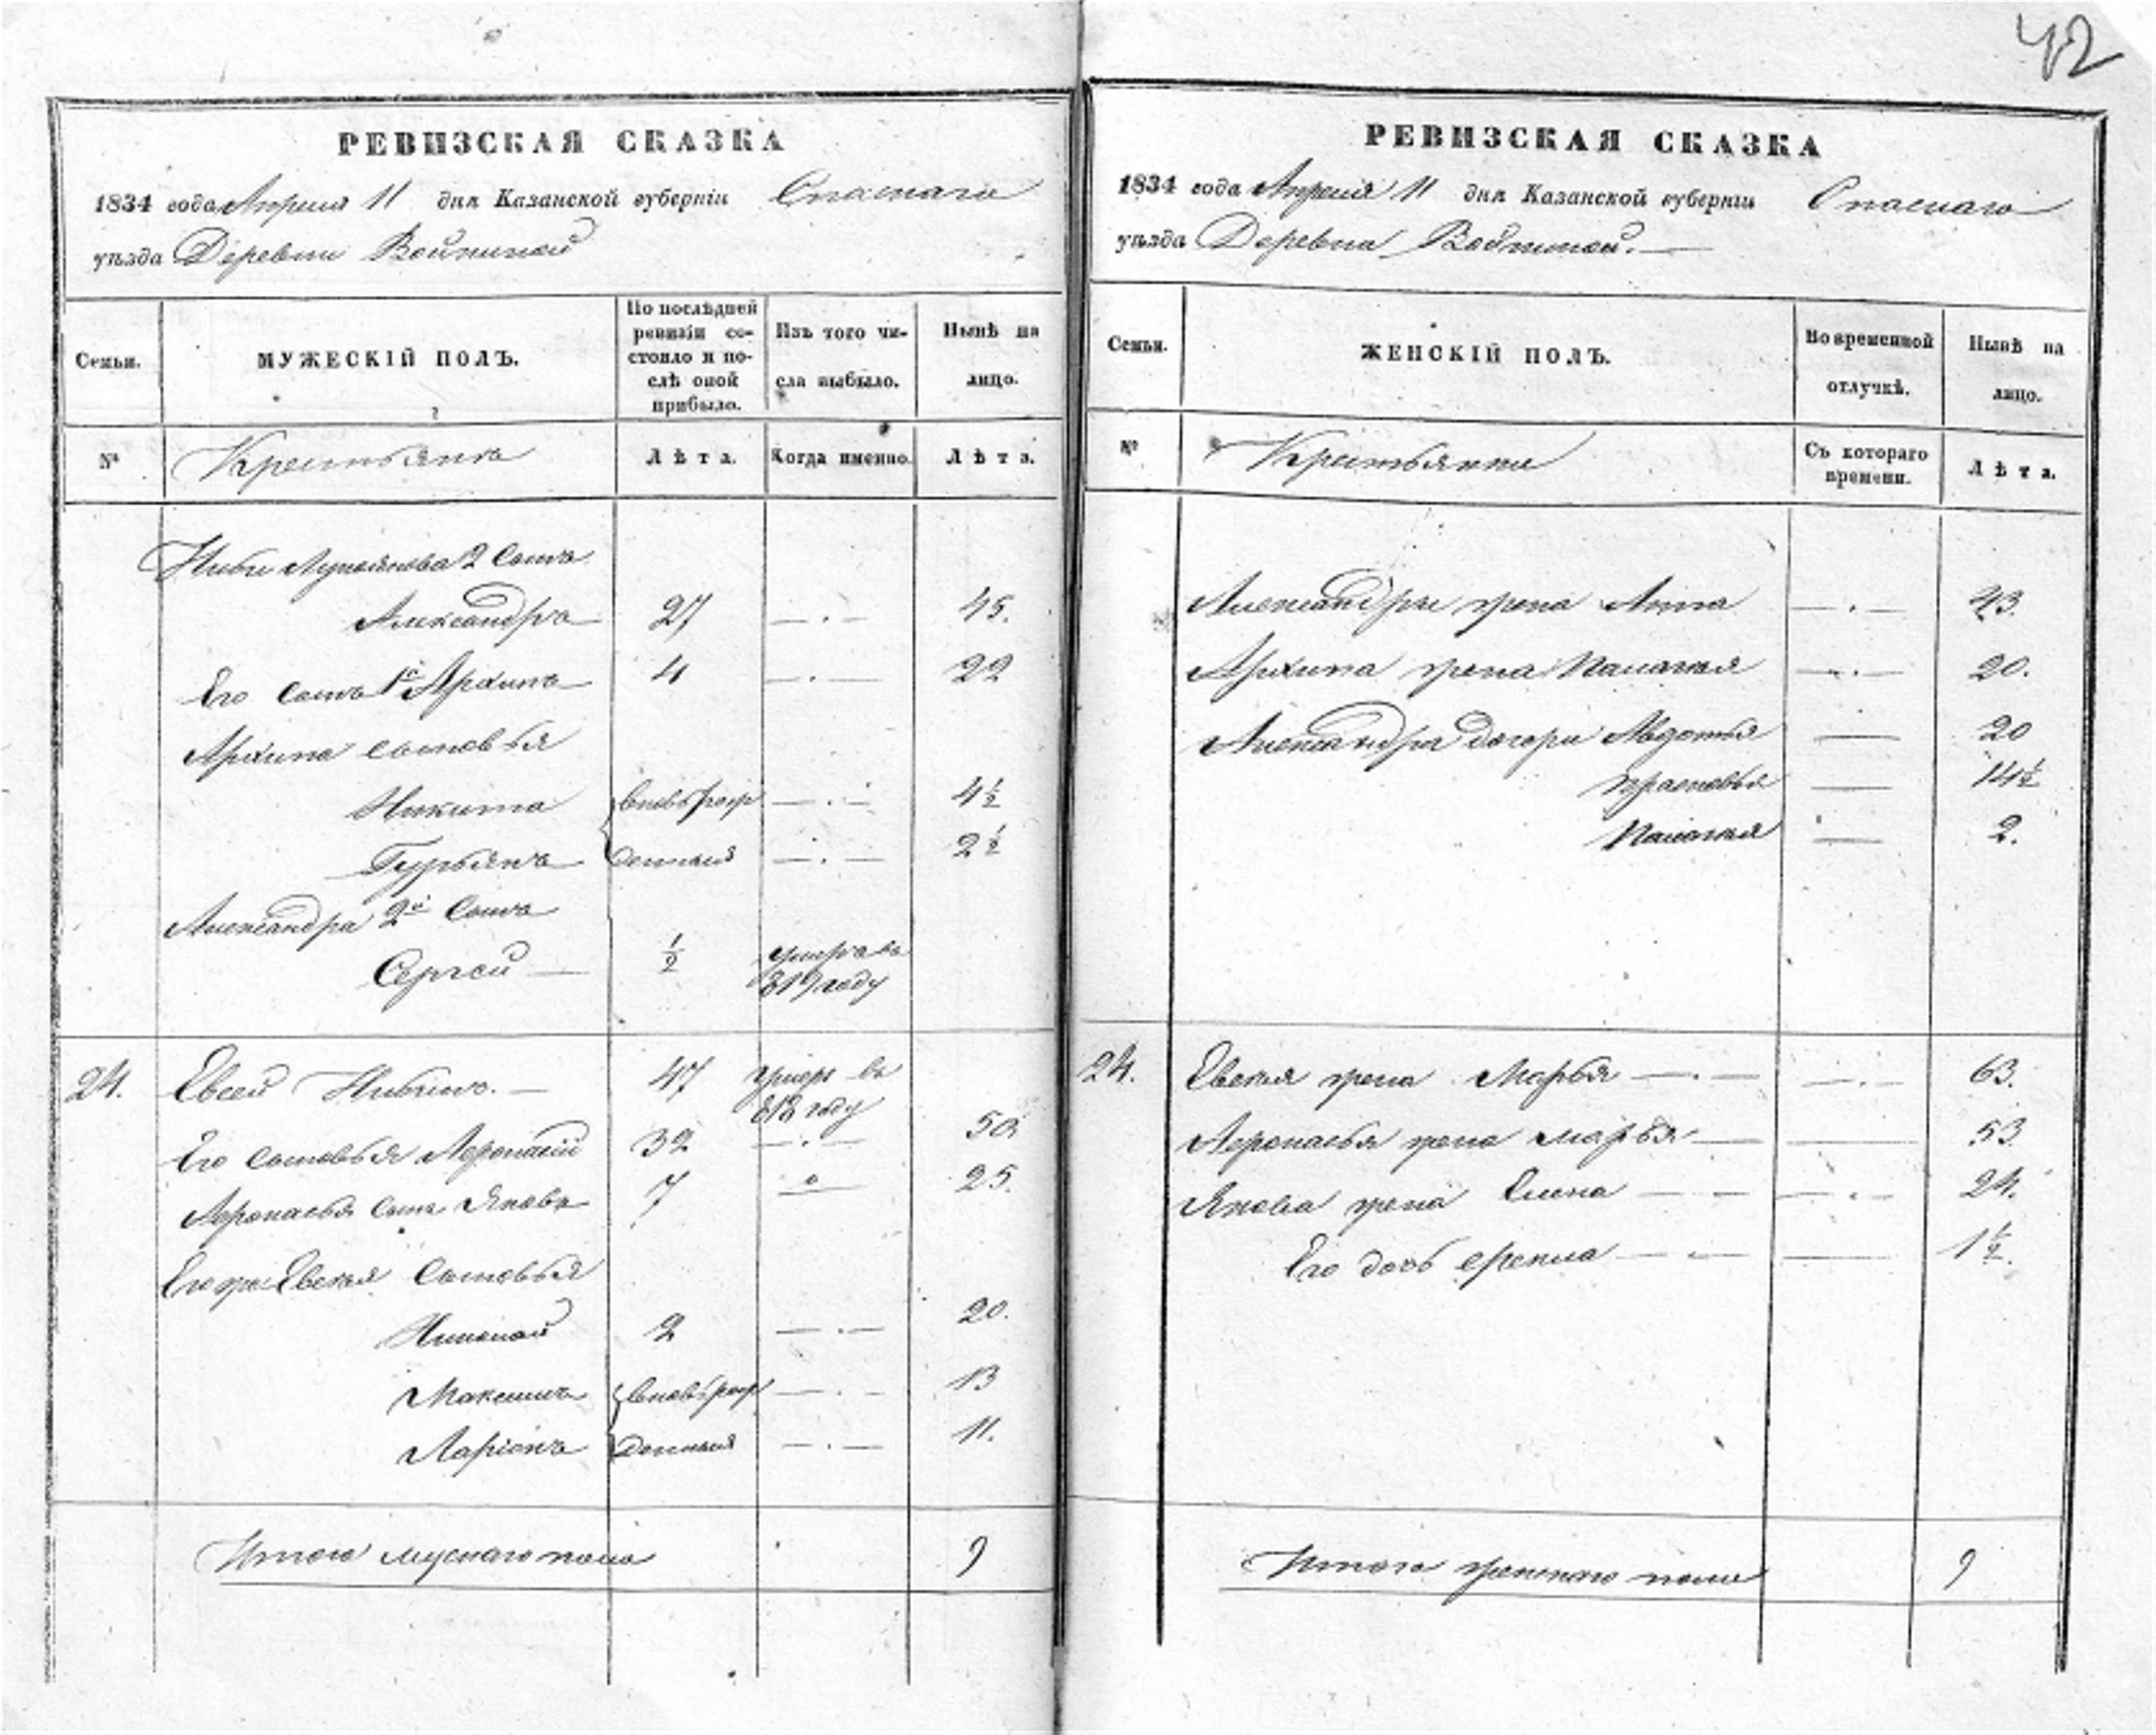 42
РЕВИЗСКАЯ СКАЗКА
1834 года Апреля 11 дня Казанской губерніи Спаскаго
уѣзда Деревни
Семьи.
МУЖЕСКІЙ ПОЛЪ.
По послѣдней ревизіи со-
стояло и по-
слѣ оной
прибыло.
Изъ того чи-
сла выбыло.
Нынѣ на
лицо.
№
Крестьянъ
Лѣта.
Когда именно.
Лѣта.
2 Сынъ
Александръ 27 —.— 45.
Его сынъ 1й Архипъ 4 —.— 22
Архипа сыновья
Никита вновь рож —.— 4½
Гурьянъ денныя —.— 2½
Александра 2й Сынъ
Сергей — ½ умеръ въ
819 году
24. Евсей — 47 умеръ въ
818 году
Его сыновья Афонасій 32 —.— 50.
Афонасья сынъ Яковъ 7 25.
Его же Евсея Сыновья
Николай 2 —.— 20.
Максимъ вновь рож —.— 13
Ларіонъ денныя —.— 11.
Итого мускаго пола 9
РЕВИЗСКАЯ СКАЗКА
1834 года Апреля 11 дня Казанской губерніи Спаскаго
уѣзда Деревни
Семьи.
ЖЕНСКІЙ ПОЛЪ.
Во временной
отлучкѣ.
Нынѣ на
лицо.
№
Крестьянки
Съ котораго
времени.
Лѣта.
Александры жена Анна —.— 43.
Архипа жена Палагея —.— 20.
Александра дочери Авдотья — 20
Прасковья — 14½
Палагея — 2.
24. Евсея жена Марья —.— —.— 63.
Афонасья жена Марья — — 53.
Якова жена Елена — — —.— 24.
Его дочь — — 1½.
Итого женскаго пола 9